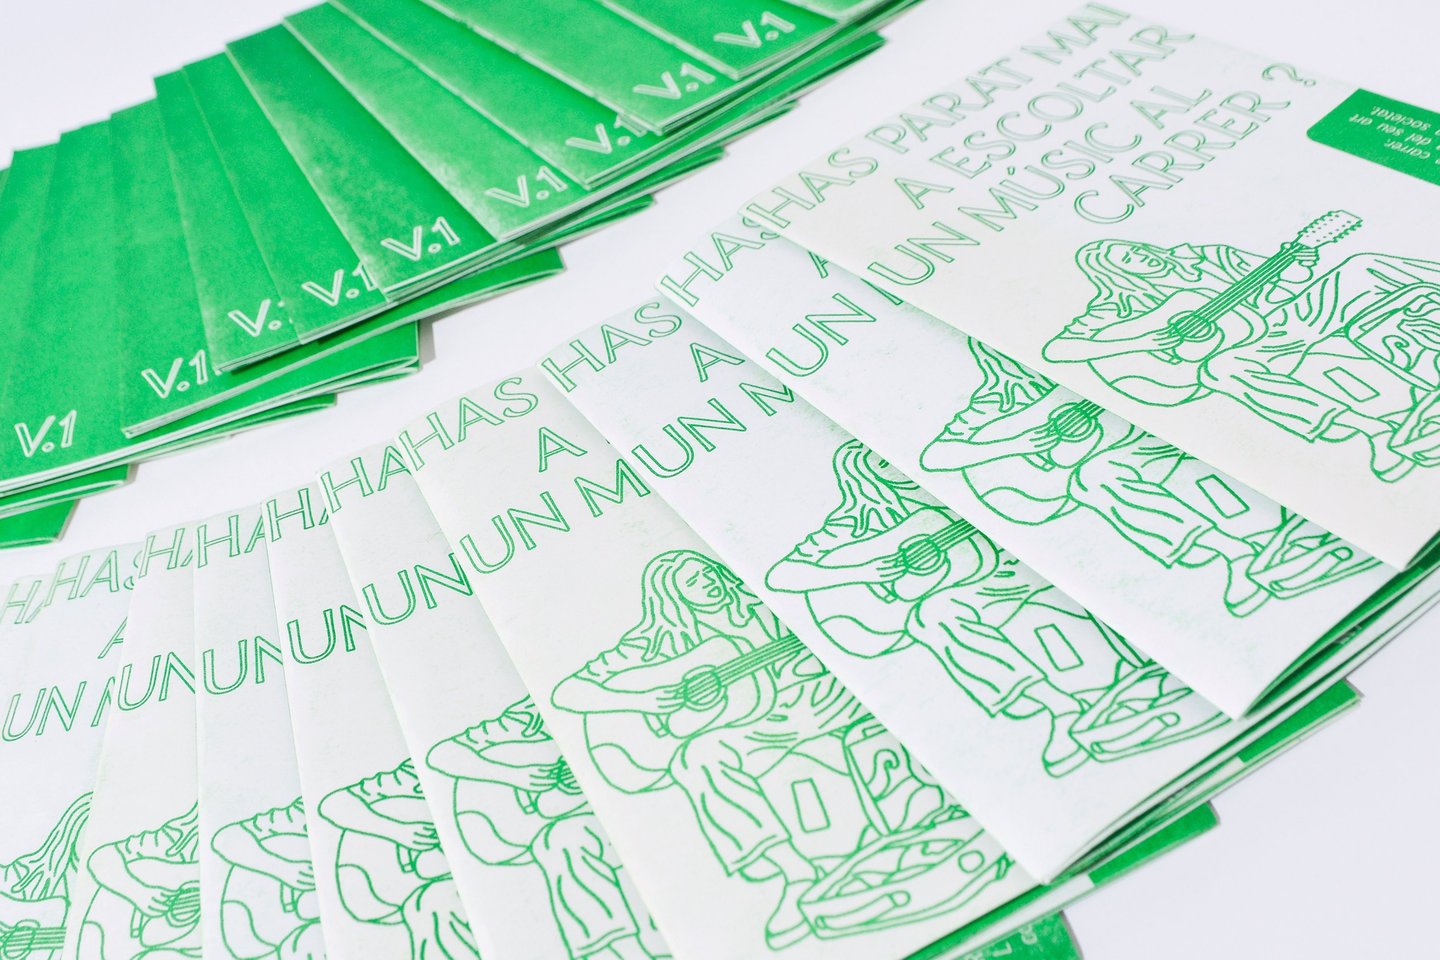 V.1
V.1
V.1
V.1
V.1
V.1
V.1
V.1
V.1
HAS PARAT MAI
A ESCOLTAR
UN MÚSIC AL
CARRER ?
carrer.
del seu art
societat.
HAS
A
UN
HAS
A
UN M
HAS
A
UN M
HA
UN
HA
UN
HA
UN
HA
UN
HAS
A
UN